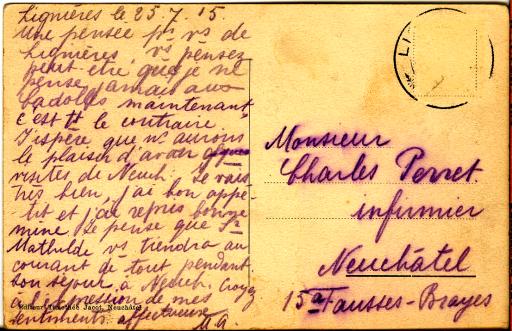 Lignières le 25.7.15.
Une pensée pr vs de
Lignières, vs pensez
peut-être que je ne
pense jamais aux
Badolles maintenant
c'est tt le contraire.
J'ispère que ns aurons
le plaisir d'avoir
visites de Neuch. Je vais
très bien, j'ai bon appé-
tit et j'ai repris bonne
mine. Je pense que Sr
Mathilde vs tiendra au
courant de tout pendant
son séjour à Neuch. Croyez
à l'expression de mes
sentiments affectueux
M.A
Editeur Timothée Jacot, Neuchâtel
LI
Monsieur
Charles Perret
infirmier
Neuchâtel
15a Fausses-Brayes